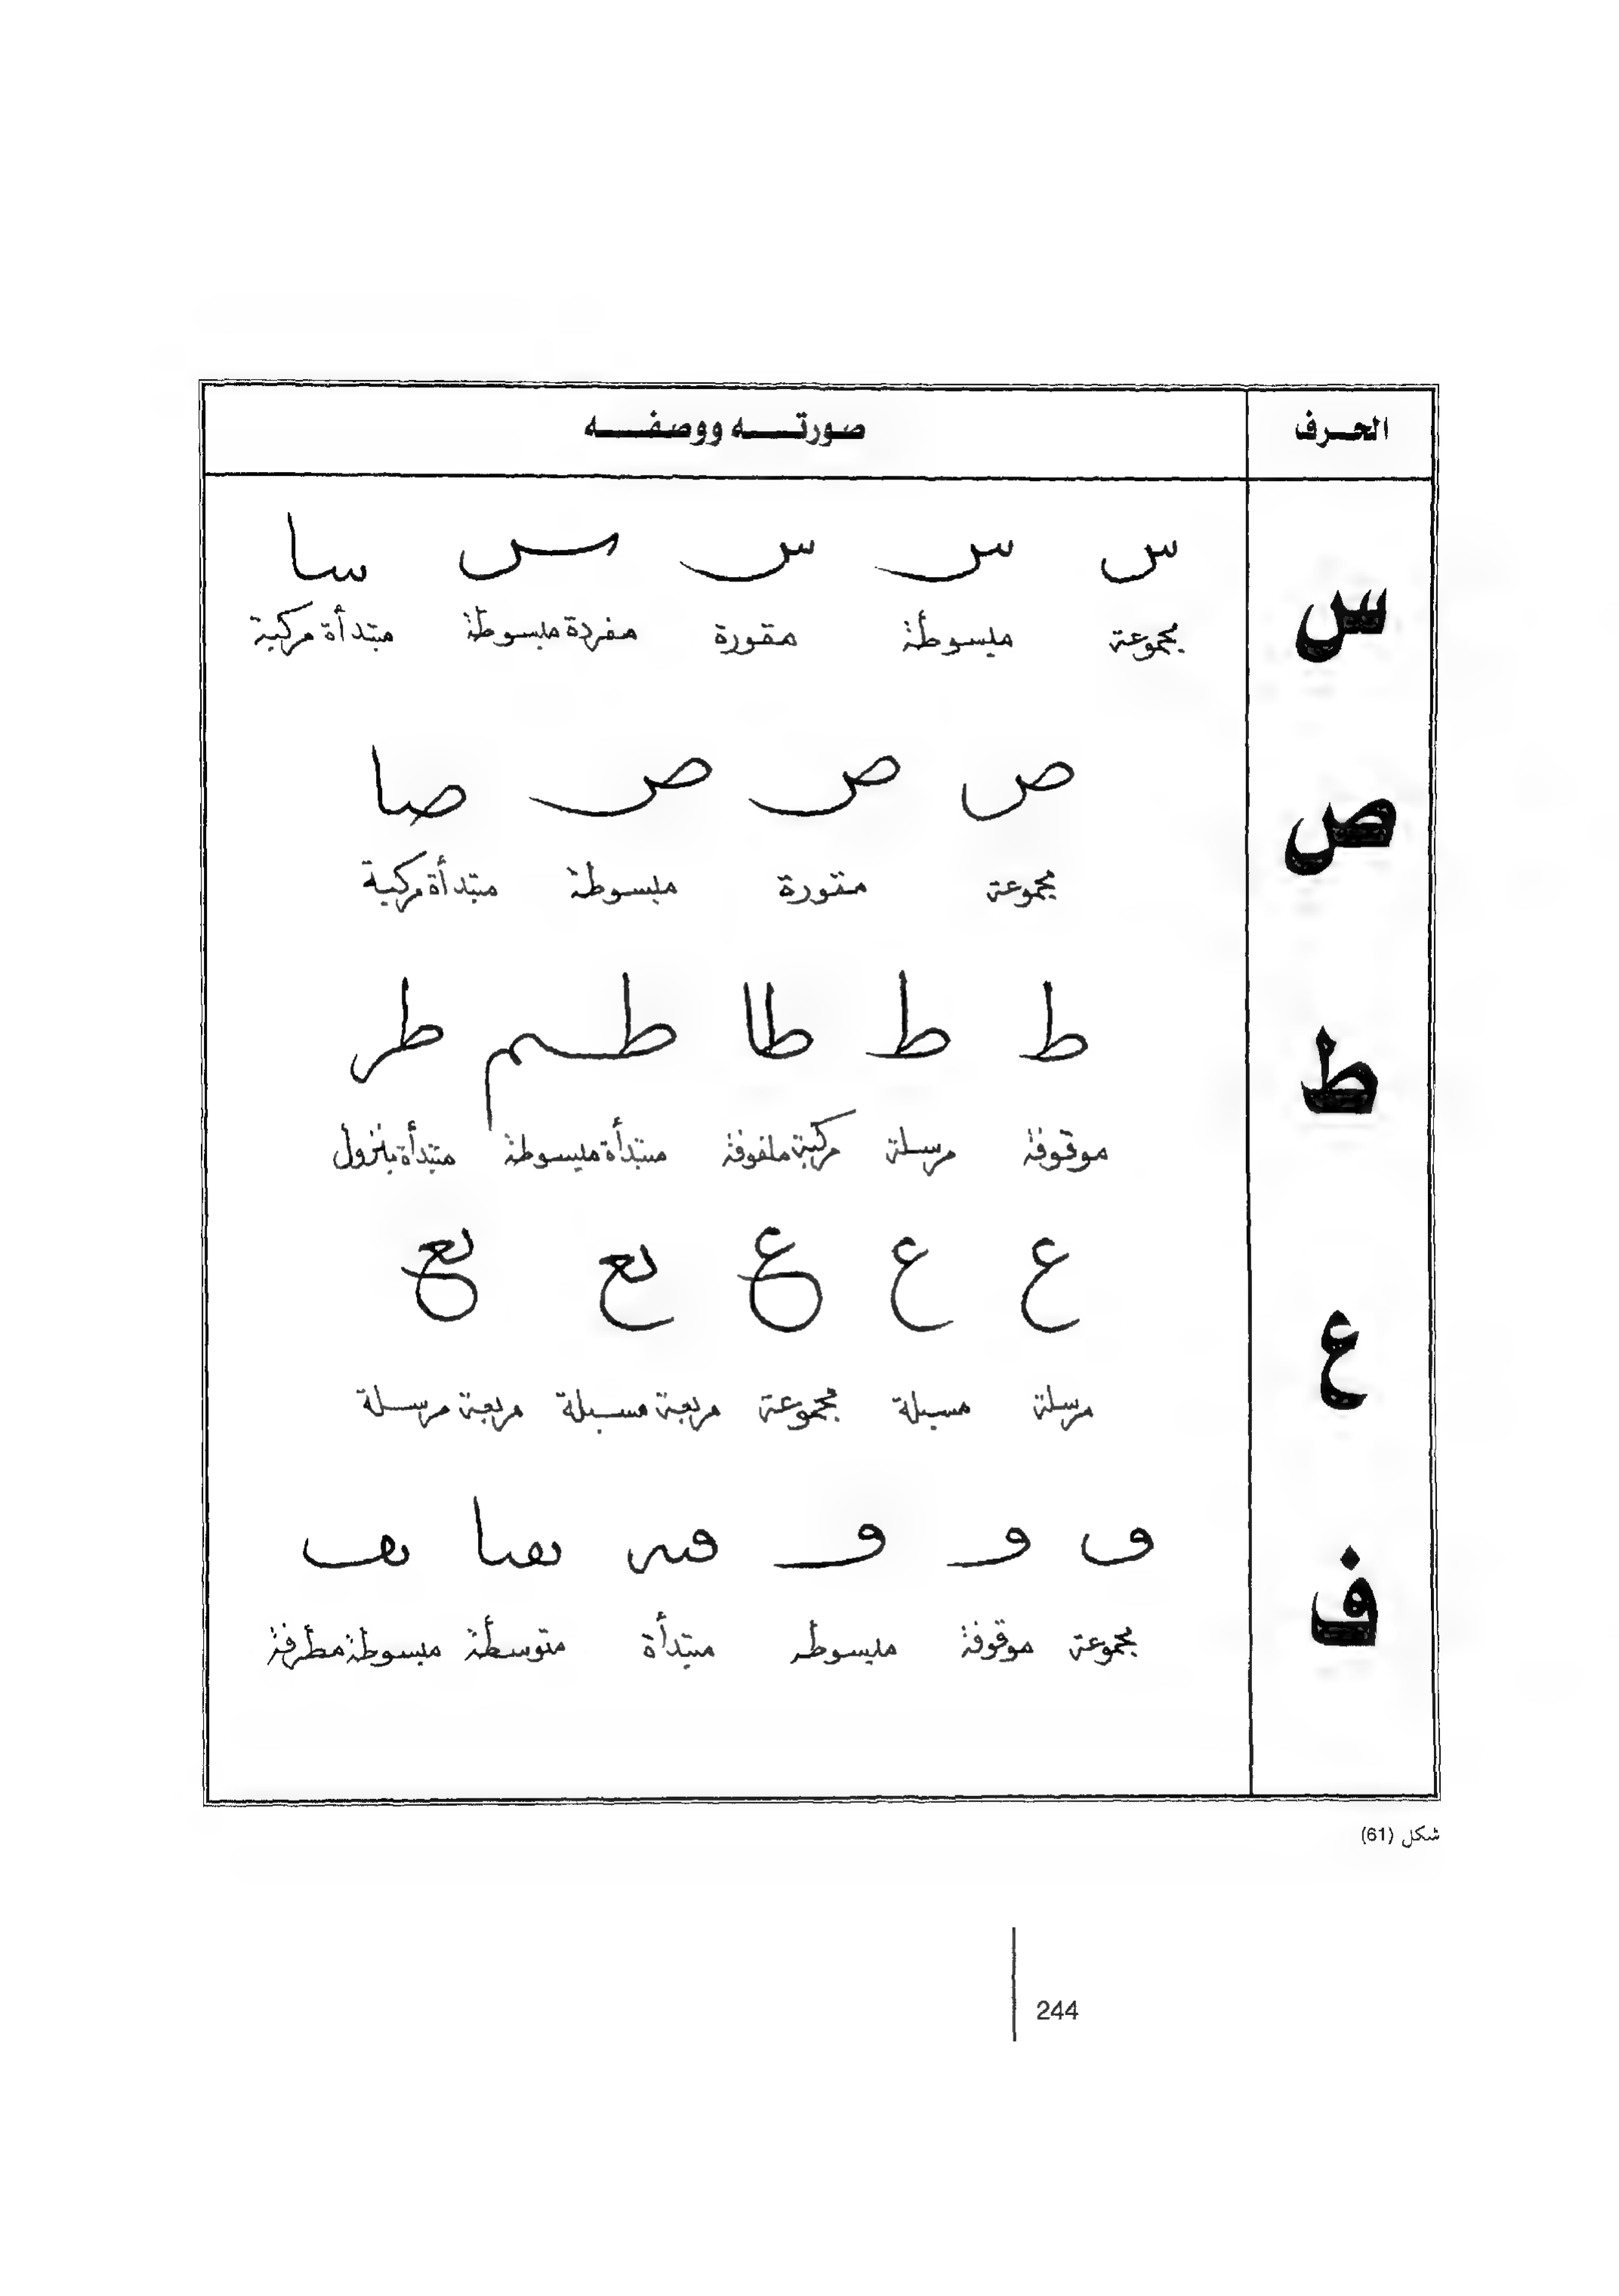 الحرف صورته ووصفه
س س س س س سا
مجموعة مبسوطة مقورة مفردة مبسوطة مبتدأة مركبة
ص ص ص ص صا
مجموعة مقورة مبسوطة مبتدأة مركبة
ط ط ط طا طم طر
موقوفة مرسلة مركبة ملفوفة مبتدأة مبسوطة مبتدأة بنزول
ع ع ع ع
مرسلة مسبلة مجموعة مربعة مسبلة مربعة مرسلة
ف
مجموعة موقوفة مبسوطه مبتدأة متوسطة مبسوطة مطرفة
شكل (61)
244